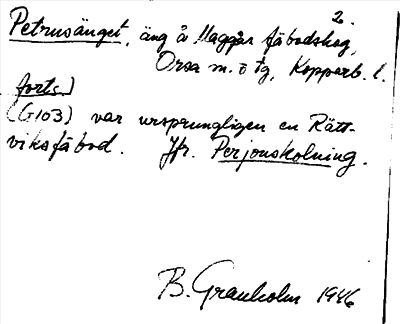 2.
Petrusänget, äng å Maggås fäbodskog,
Orsa m. o tg, Kopparb. l.
forts.)
(G103) var ursprungligen en Rätt-
viksfäbod. Jfr. Perjonskolning.
B. Granholm 1946